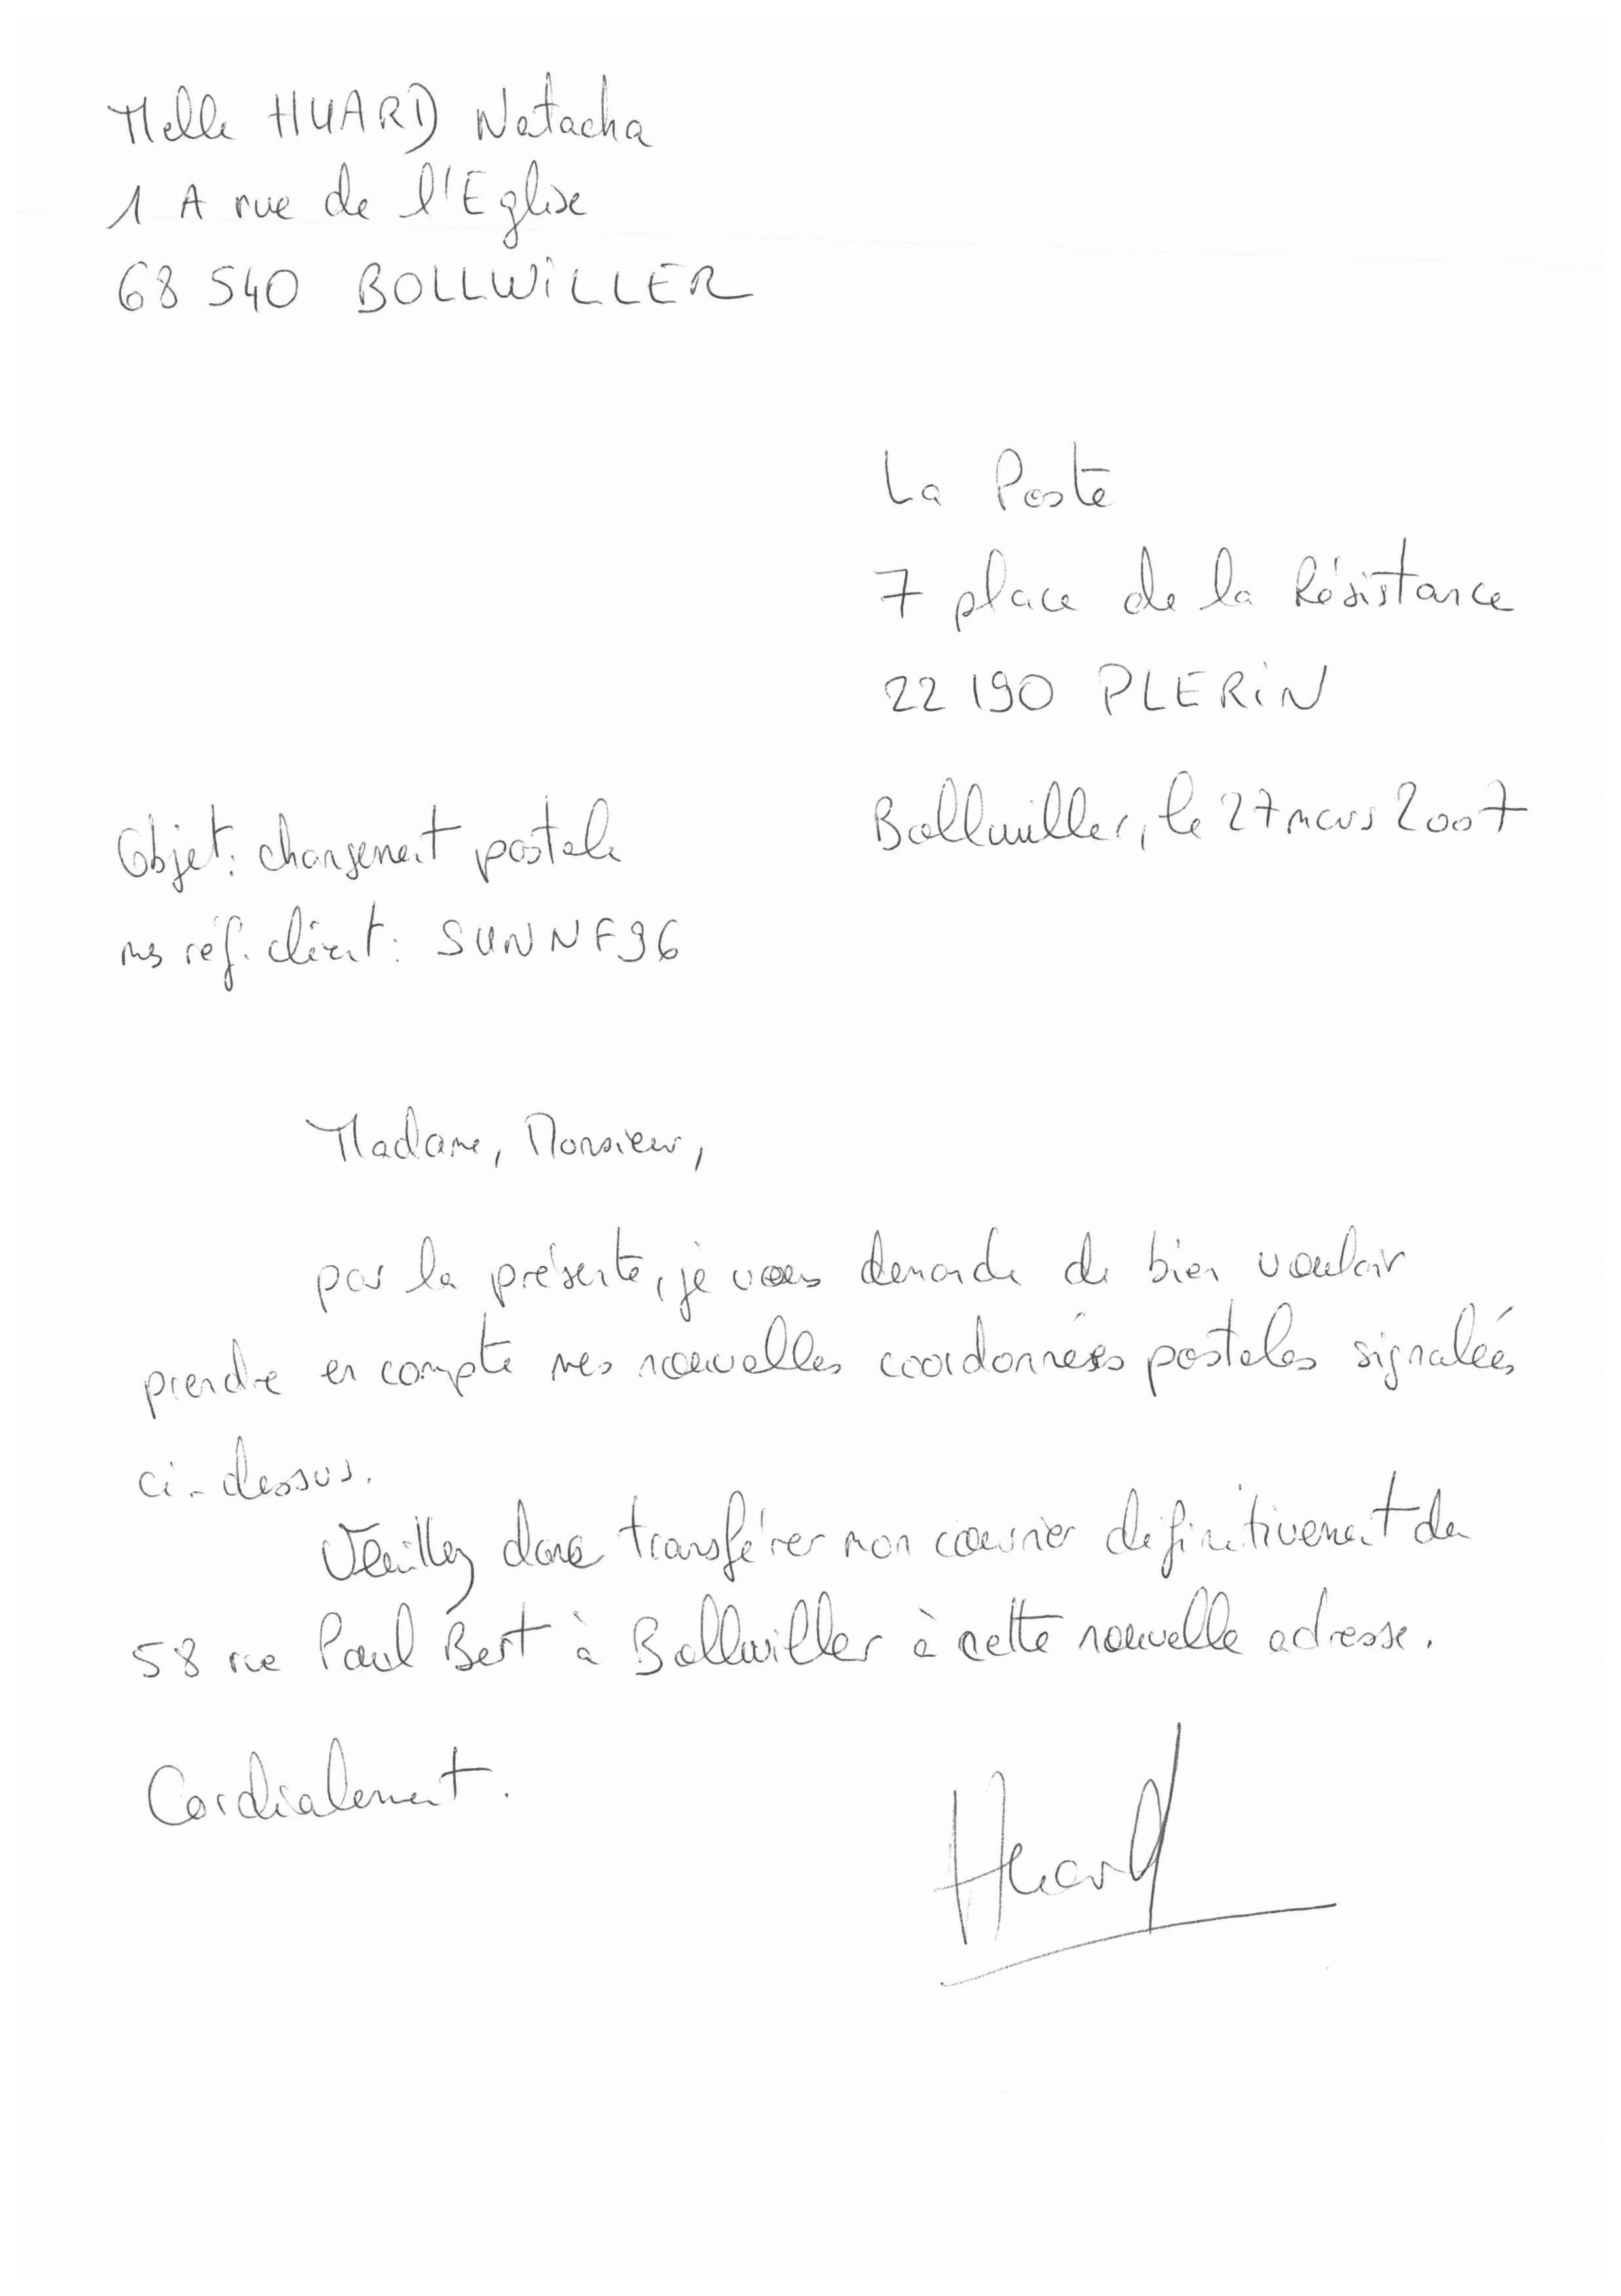 Melle HUARD Natacha
1 A rue de l'Eglise
68 540 BOLLWiLLER
La Poste
7 place de la Résistance
22 190 PLERiN
Bollwiller, le 27 mars 2007
Objet: changement postale
ms réf. client: SUNNF96
Madame, Monsieur,
par la présente, je vous demande de bien vouloir
prendre en compte mes nouvelles coordonnées postales signalées
ci-dessus.
Veuillez donc transférer mon courrier définitivement du
58 rue Paul Bert à Bollwiller à cette nouvelle adresse.
Cordialement.
Huard